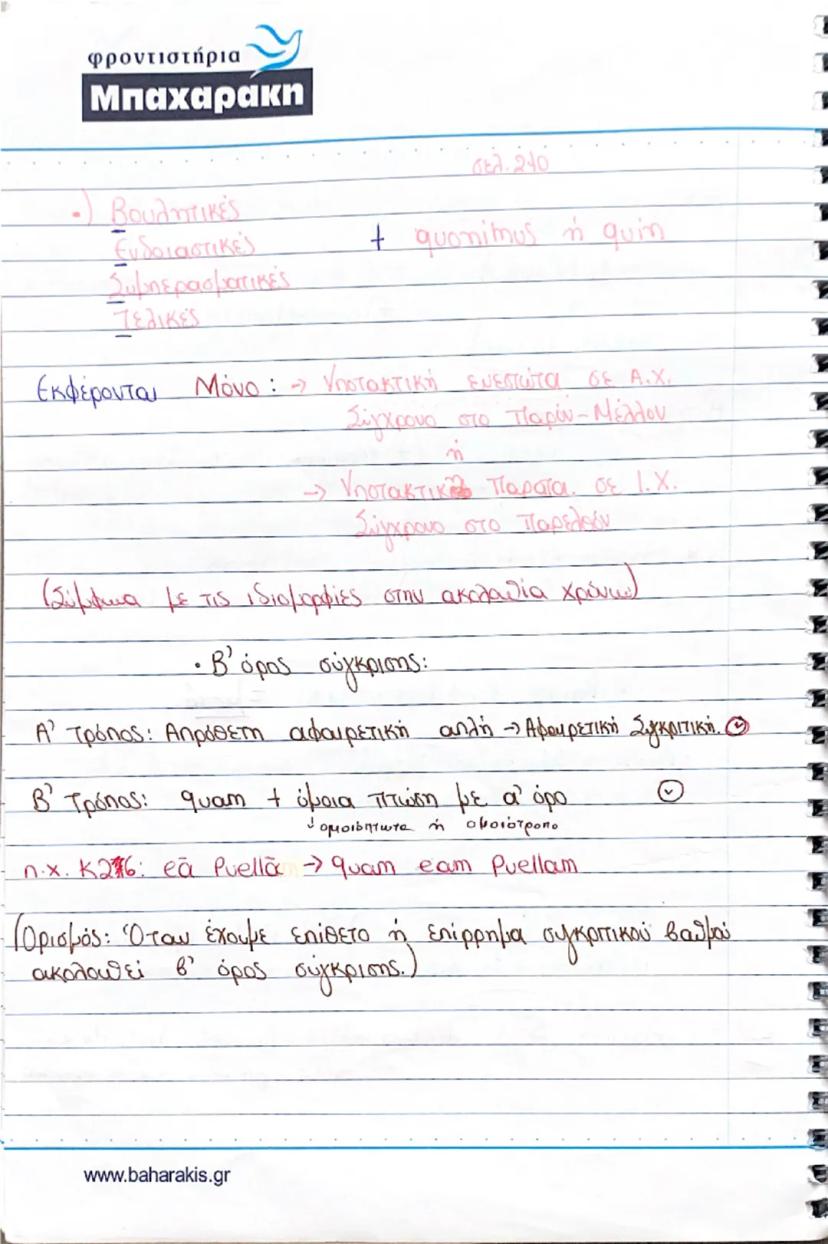 φροντιστήρια
Μπαχαράκη
σελ. 210
•) Βουλητικές
Ενδοιαστικές + quominus ή quin
Συμπερασματικές
Τελικές
Εκφέρονται Μόνο: → Υποτακτική ενεστώτα σε Α.Χ.
Σύγχρονο στο Παρόν-Μέλλον
ή
→ Υποτακτική Παρατα. σε Ι.Χ.
Σύγχρονο στο Παρελθόν
(Σύμφωνα με τις ιδιομορφίες στην ακολουθία χρόνων)
• Β' όρος σύγκρισης:
Α' Τρόπος: Απρόθετη αφαιρετική απλή → Αφαιρετική Συγκριτική.
Β' Τρόπος: quam + όμοια πτώση με α' όρο
ομοιόπτωτα ή ομοιότροπο
π.χ. Κ26: eā Puellā → quam eam Puellam
(Ορισμός: Όταν έχουμε επίθετο ή επίρρημα συγκριτικού βαθμού
ακολουθεί β' όρος σύγκρισης.)
www.baharakis.gr